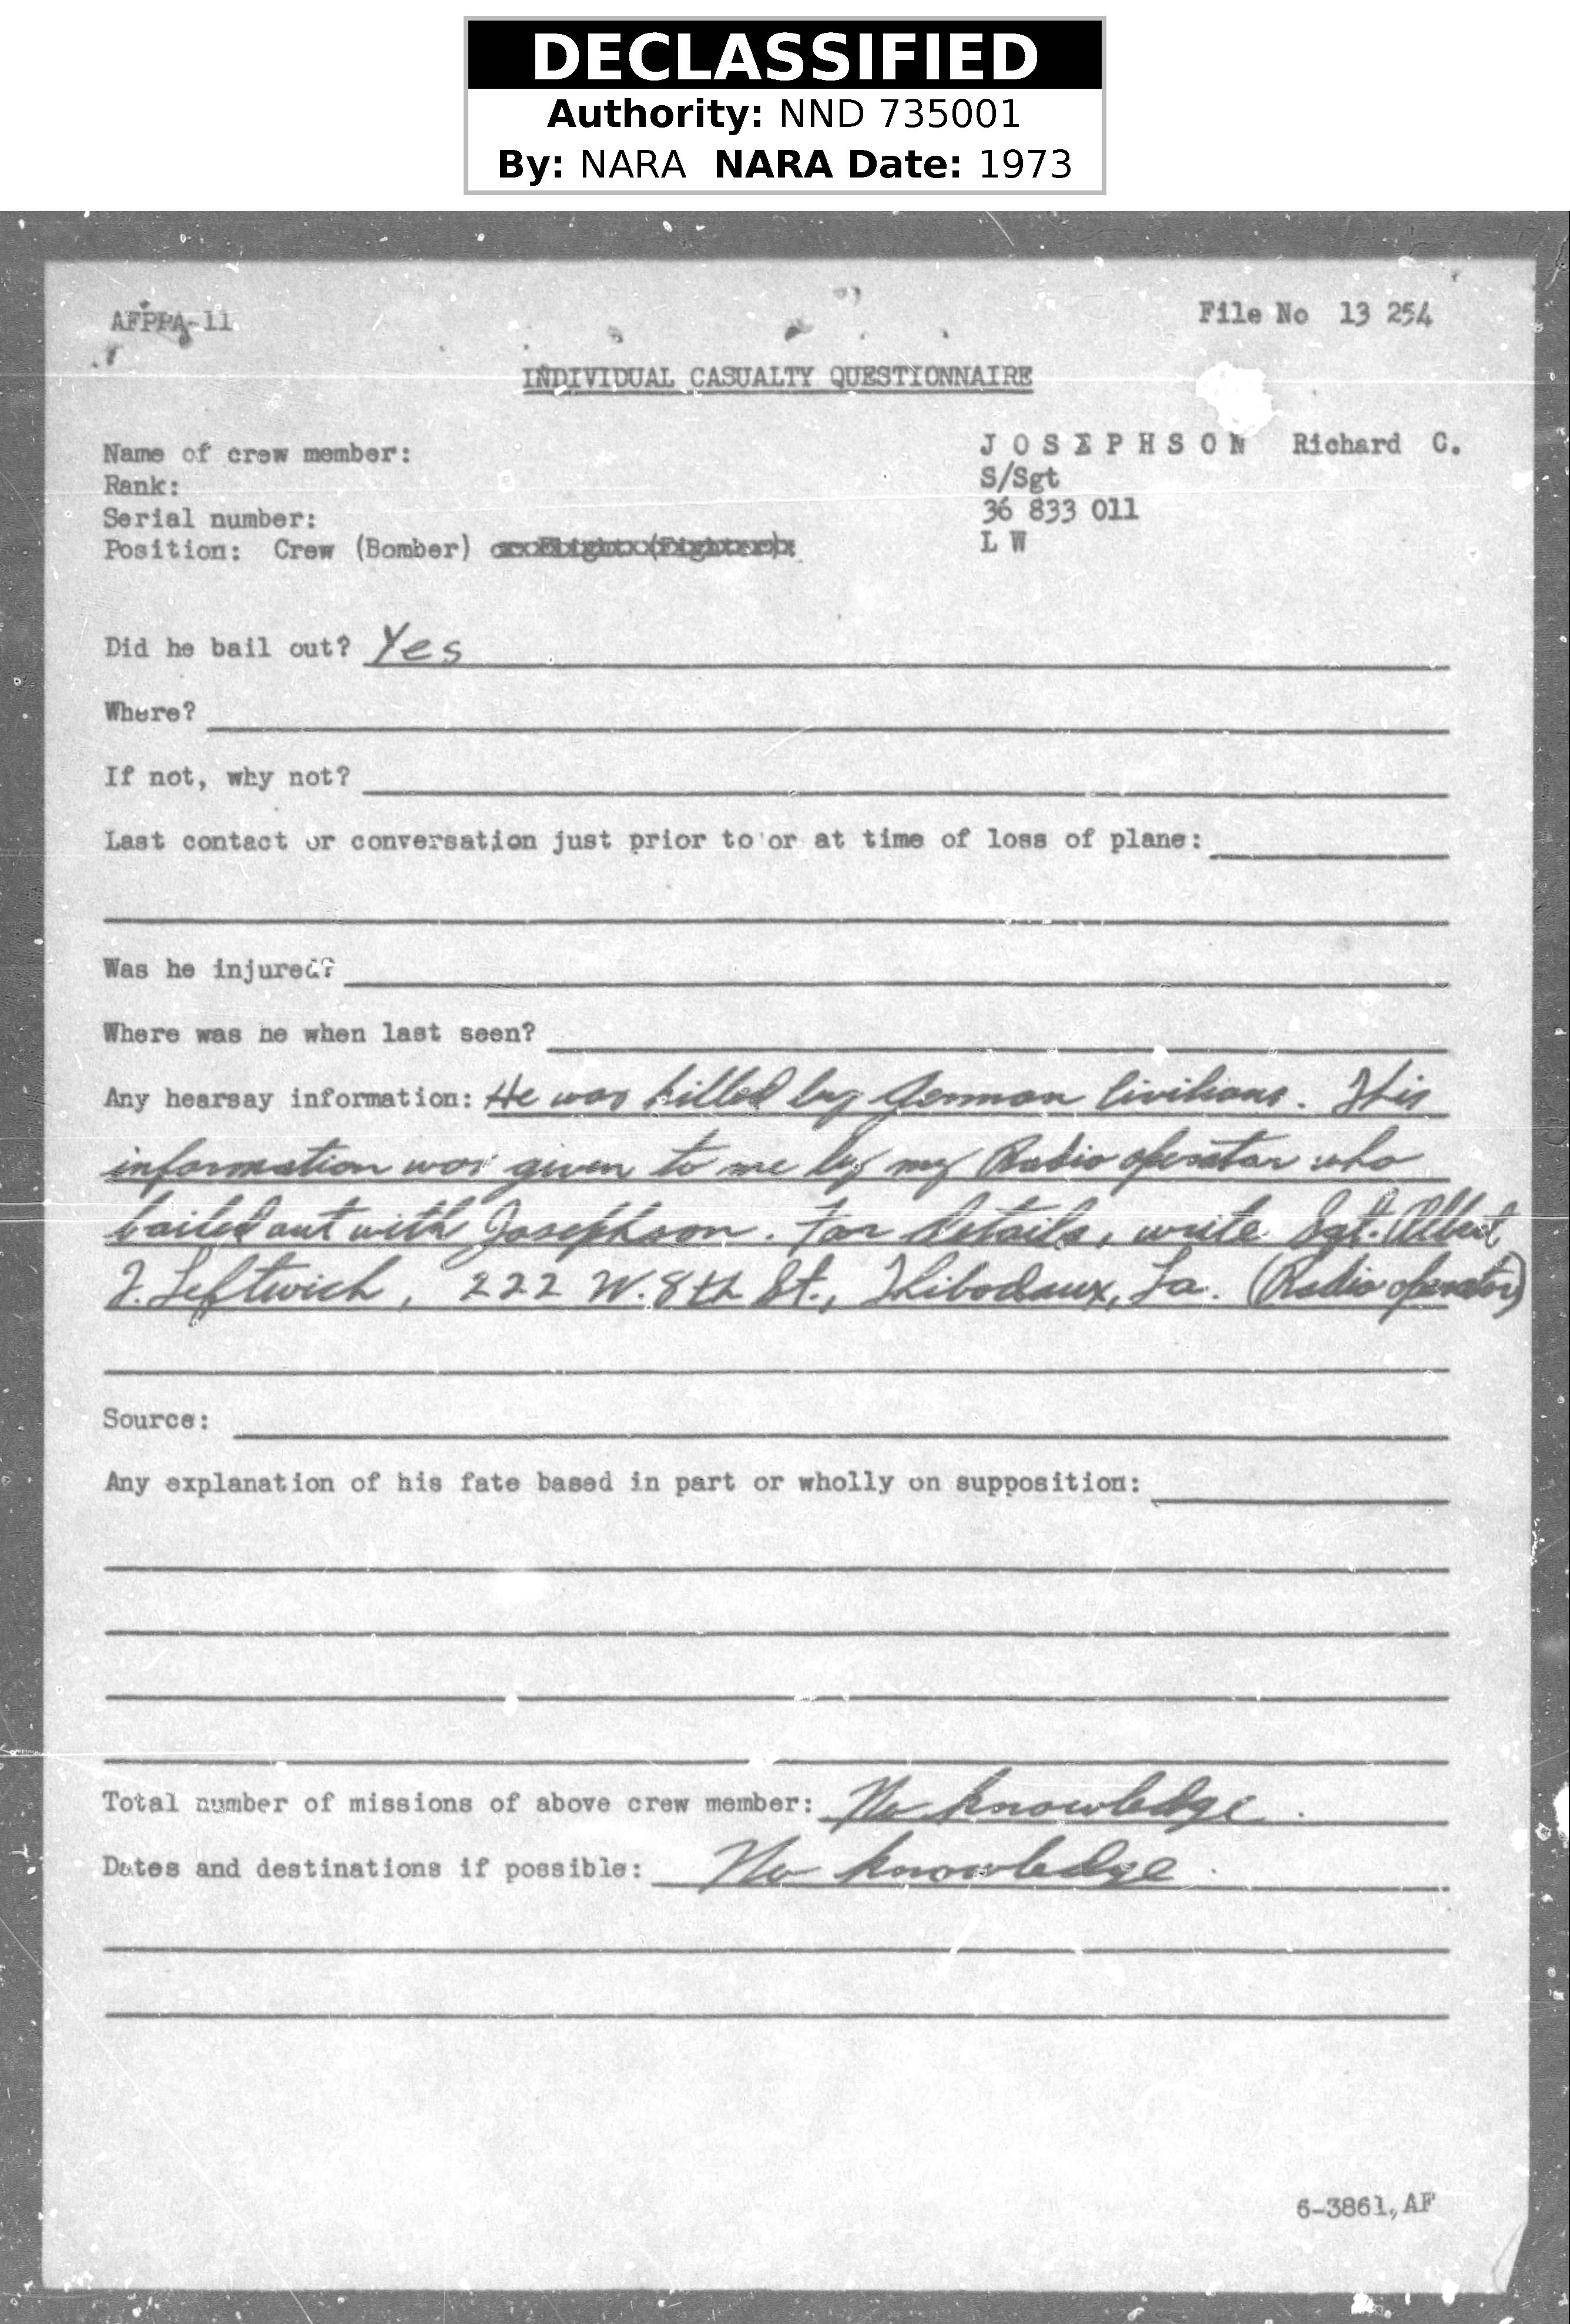 DECLASSIFIED
Authority: NND 735001
By: NARA NARA Date: 1973
AFPPA-11
File No 13 254
INDIVIDUAL CASUALTY QUESTIONNAIRE
Name of crew member: J O S E P H S O N Richard C.
Rank: S/Sgt
Serial number: 36 833 011
Position: Crew (Bomber) or Flight (Fighter) L W
Did he bail out? Yes
Where?
If not, why not?
Last contact or conversation just prior to or at time of loss of plane:
Was he injured?
Where was he when last seen?
Any hearsay information: He was killed by German Civilians. This
information was given to me by my Radio operator who
bailed out with Josephson. For details, write Sgt. Albert
J. Leftwich, 222 W. 8th St., Thibodaux, La. (Radio operator)
Source:
Any explanation of his fate based in part or wholly on supposition:
Total number of missions of above crew member: No knowledge.
Dates and destinations if possible: No knowledge.
6-3861,AF